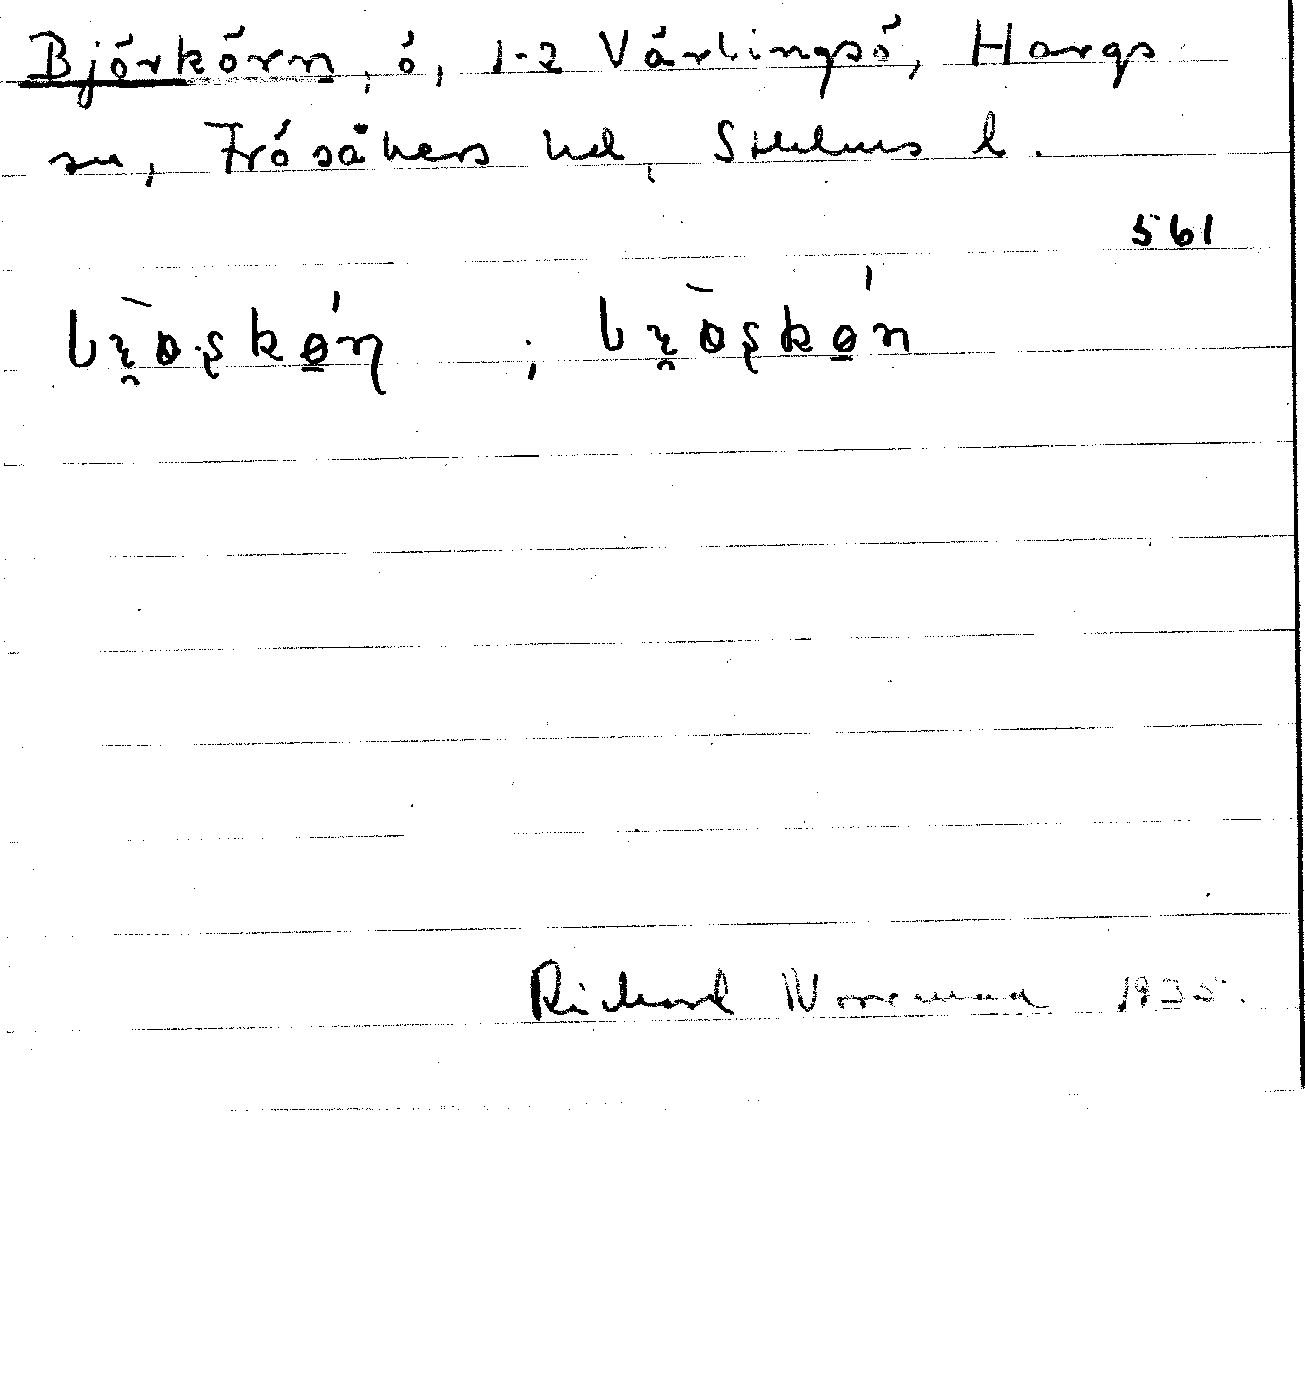 Björkörn, ö, 1-2 Värlingsö, Hargs
sn, Frösåkers hd, Sthlms l.
561
Richard Norrman 1935.